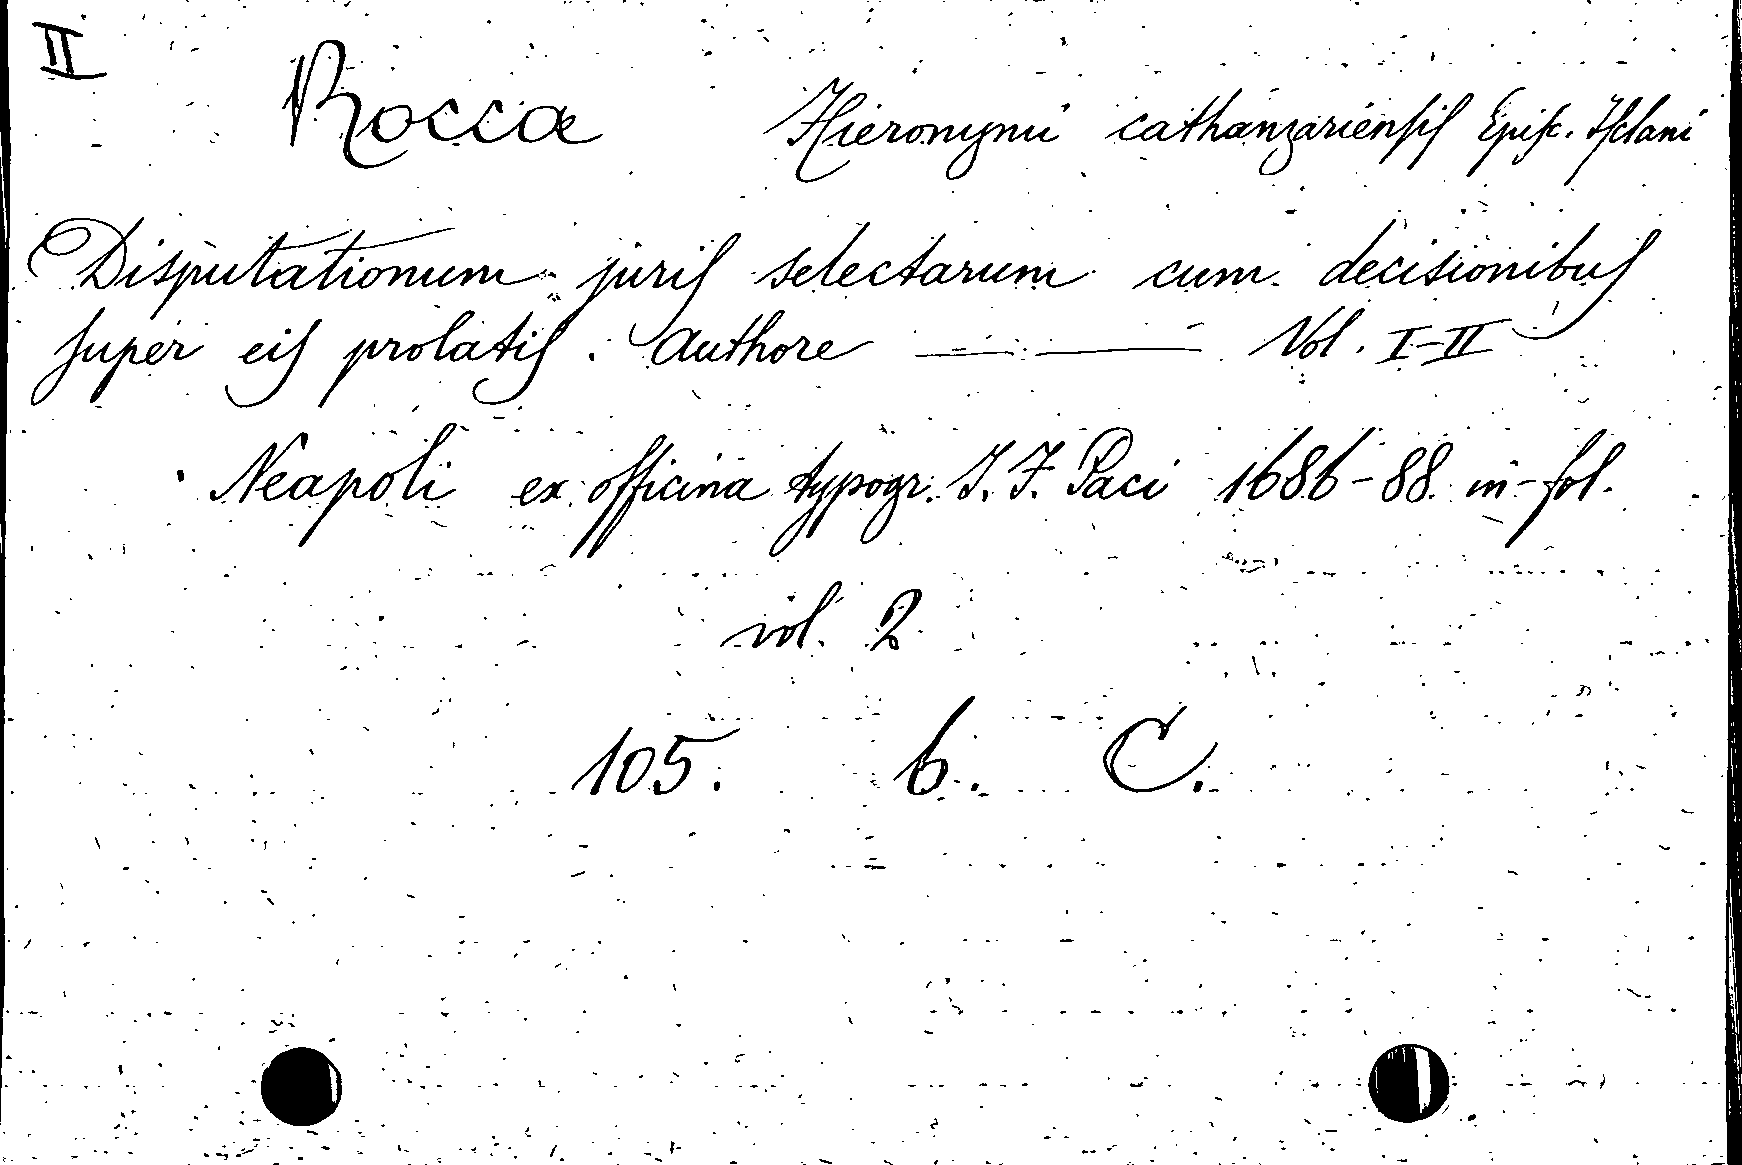 II
Rocca Hieronymi cathanzariensis Episc. Isclani
Disputationum juris selectarum cum decisionibus
super eis prolatis. Authore ——— Vol. I-II
Neapoli ex officina typogr. J. F. Paci 1686-88 in-fol.
vol. 2
105. b. C.